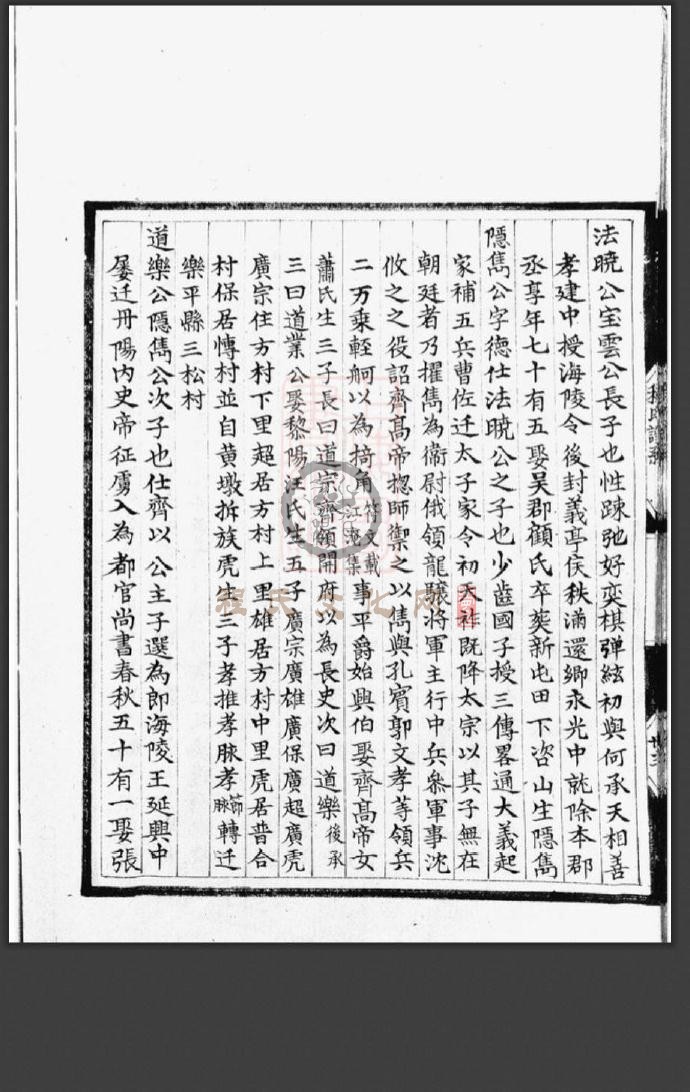 法曉公宝雲公長子也性踈弛好奕棋弹絃初與何承天相善
孝建中授海陵令後封義亭侯秩滿還鄉永光中就除本郡
丞享年七十有五娶吴郡顧氏卒葬新屯田下咨山生隱雋
隱雋公字德仕法曉公之子也少齒國子授三傳畧通大義起
家補五兵曹佐迁太子家令初天祚既降太宗以其子無在
朝廷者乃擢雋為衞尉俄領龍驤將軍主行中兵叅軍事沈
攸之之役詔齊髙帝揔師禦之以雋與孔賔郭文孝等領兵
二万乘輕舸以為掎角符文載江淹集事平爵始興伯娶齊髙帝女
蕭氏生三子長曰道宗齊領開府以為長史次曰道樂後承
三曰道業公娶黎陽汪氏生五子廣宗廣雄廣保廣超廣虎
廣宗住方村下里超居方村上里雄居方村中里虎居普合
村保居愽村並自黄墩拆族虎生三子孝推孝脉孝脉節轉迁
樂平縣三松村
道樂公隱雋公次子也仕齊以公主子選為郎海陵王延興中
屡迁丹陽内史帝征虜入為都官尚書春秋五十有一娶張
程氏文化网